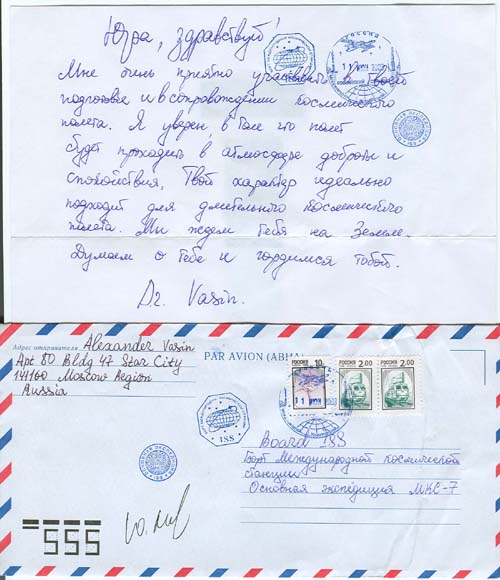 Юра, здравствуй!
Мне очень приятно участвовать в Твоей
подготовке и в сопровождении космического
полета. Я уверен, в том что полет
будет проходить в атмосфере доброты и
спокойствия, Твой характер идеально
подходит для длительного космического
полета. Мы ждем Тебя на Земле.
Думаем о тебе и гордимся тобой.
Dr. Vasin.
РОССИЯ
ISS
Адрес отправителя Alexander Vasin
Apt 80 Bldg 47 Star City
141160 Moscow Region
Russia
PAR AVION (АВИА)
РОССИЯ 10
РОССИЯ 2.00
РОССИЯ 2.00
ISS
Board ISS
Борт Международной космической
станции
Основная экспедиция МКС-7